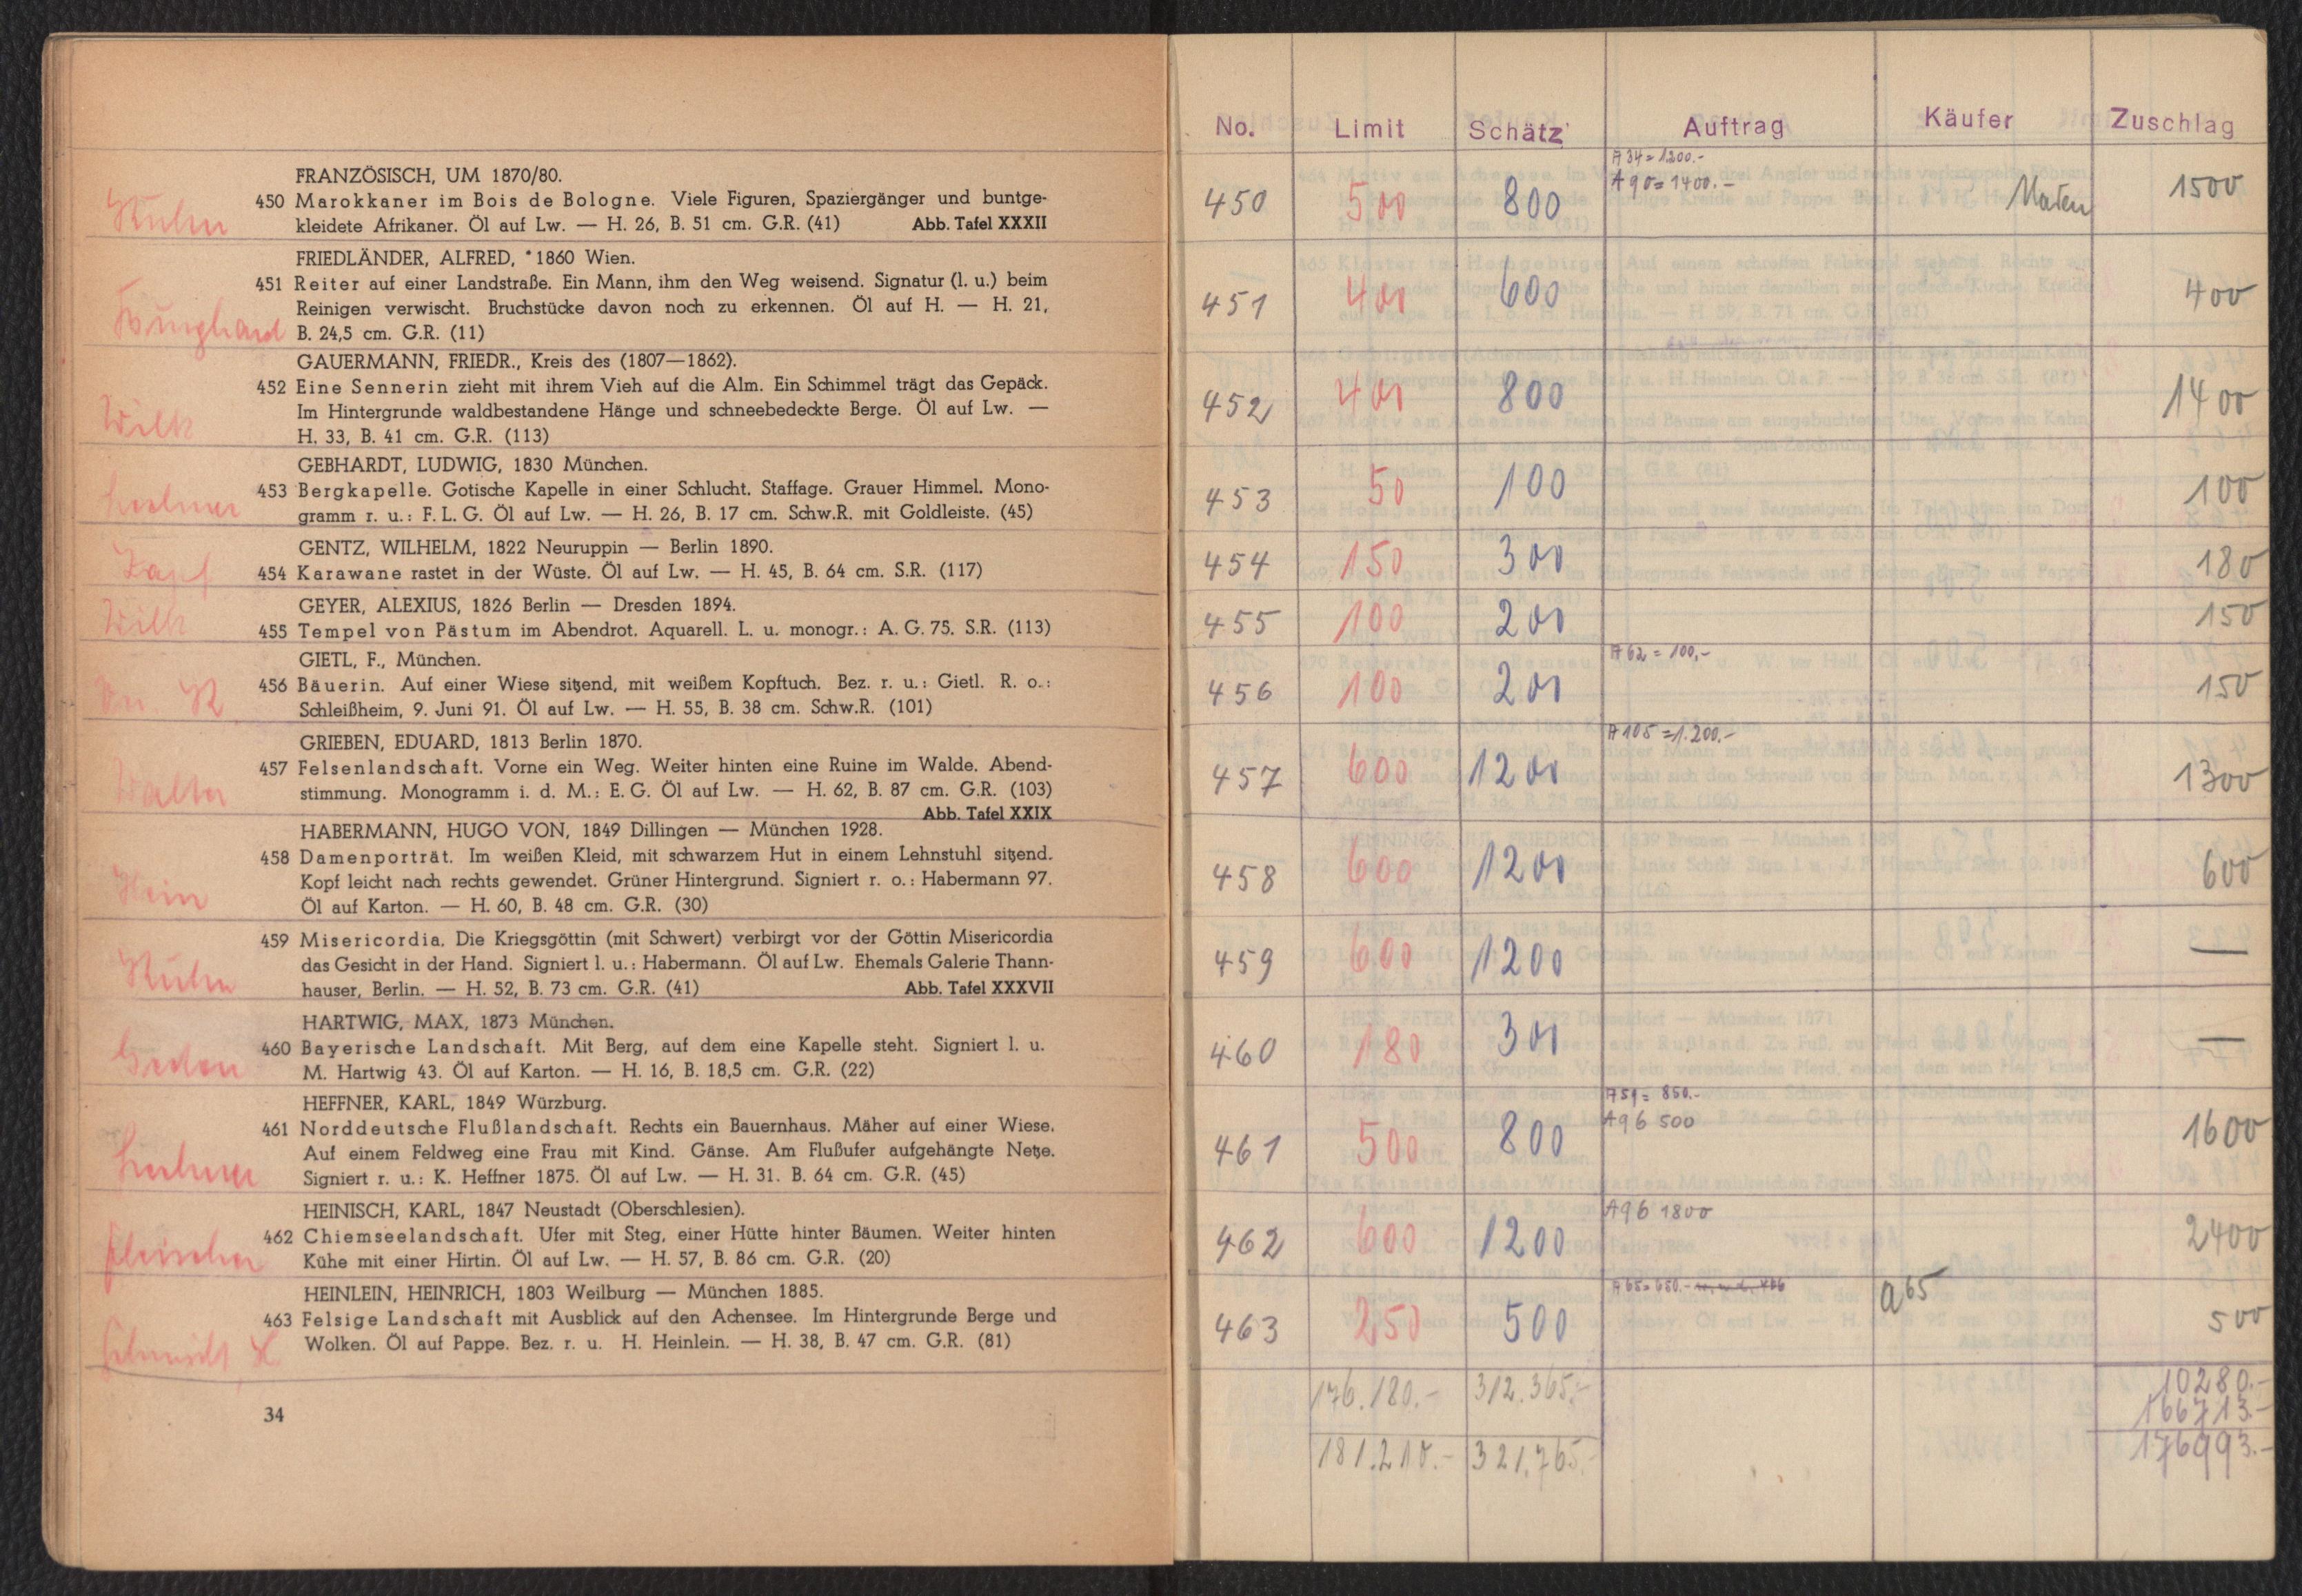 FRANZÖSISCH, UM 1870/80.
Kuhn
450 Marokkaner im Bois de Bologne. Viele Figuren, Spaziergänger und buntge-
kleidete Afrikaner. Öl auf Lw. — H. 26, B. 51 cm. G.R. (41) Abb. Tafel XXXII
FRIEDLÄNDER, ALFRED, *1860 Wien.
451 Reiter auf einer Landstraße. Ein Mann, ihm den Weg weisend. Signatur (l. u.) beim
Reinigen verwischt. Bruchstücke davon noch zu erkennen. Öl auf H. — H. 21,
B. 24,5 cm. G.R. (11)
GAUERMANN, FRIEDR., Kreis des (1807—1862).
452 Eine Sennerin zieht mit ihrem Vieh auf die Alm. Ein Schimmel trägt das Gepäck.
Wilk
Im Hintergrunde waldbestandene Hänge und schneebedeckte Berge. Öl auf Lw. —
H. 33, B. 41 cm. G.R. (113)
GEBHARDT, LUDWIG, 1830 München.
453 Bergkapelle. Gotische Kapelle in einer Schlucht. Staffage. Grauer Himmel. Mono-
gramm r. u.: F. L. G. Öl auf Lw. — H. 26, B. 17 cm. Schw.R. mit Goldleiste. (45)
GENTZ, WILHELM, 1822 Neuruppin — Berlin 1890.
Zapf
454 Karawane rastet in der Wüste. Öl auf Lw. — H. 45, B. 64 cm. S.R. (117)
GEYER, ALEXIUS, 1826 Berlin — Dresden 1894.
Wilk
455 Tempel von Pästum im Abendrot. Aquarell. L. u. monogr.: A. G. 75. S.R. (113)
GIETL, F., München.
456 Bäuerin. Auf einer Wiese sitzend, mit weißem Kopftuch. Bez. r. u.: Gietl. R. o.:
Schleißheim, 9. Juni 91. Öl auf Lw. — H. 55, B. 38 cm. Schw.R. (101)
GRIEBEN, EDUARD, 1813 Berlin 1870.
457 Felsenlandschaft. Vorne ein Weg. Weiter hinten eine Ruine im Walde. Abend-
Walter
stimmung. Monogramm i. d. M.: E. G. Öl auf Lw. — H. 62, B. 87 cm. G.R. (103)
Abb. Tafel XXIX
HABERMANN, HUGO VON, 1849 Dillingen — München 1928.
458 Damenporträt. Im weißen Kleid, mit schwarzem Hut in einem Lehnstuhl sitzend.
Hein
Kopf leicht nach rechts gewendet. Grüner Hintergrund. Signiert r. o.: Habermann 97.
Öl auf Karton. — H. 60, B. 48 cm. G.R. (30)
459 Misericordia. Die Kriegsgöttin (mit Schwert) verbirgt vor der Göttin Misericordia
Kuhn
das Gesicht in der Hand. Signiert l. u.: Habermann. Öl auf Lw. Ehemals Galerie Thann-
hauser, Berlin. — H. 52, B. 73 cm. G.R. (41) Abb. Tafel XXXVII
HARTWIG, MAX, 1873 München.
460 Bayerische Landschaft. Mit Berg, auf dem eine Kapelle steht. Signiert l. u.
M. Hartwig 43. Öl auf Karton. — H. 16, B. 18,5 cm. G.R. (22)
HEFFNER, KARL, 1849 Würzburg.
461 Norddeutsche Flußlandschaft. Rechts ein Bauernhaus. Mäher auf einer Wiese.
Auf einem Feldweg eine Frau mit Kind. Gänse. Am Flußufer aufgehängte Netze.
Signiert r. u.: K. Heffner 1875. Öl auf Lw. — H. 31. B. 64 cm. G.R. (45)
HEINISCH, KARL, 1847 Neustadt (Oberschlesien).
462 Chiemseelandschaft. Ufer mit Steg, einer Hütte hinter Bäumen. Weiter hinten
Fleischer
Kühe mit einer Hirtin. Öl auf Lw. — H. 57, B. 86 cm. G.R. (20)
HEINLEIN, HEINRICH, 1803 Weilburg — München 1885.
463 Felsige Landschaft mit Ausblick auf den Achensee. Im Hintergrunde Berge und
Wolken. Öl auf Pappe. Bez. r. u. H. Heinlein. — H. 38, B. 47 cm. G.R. (81)
34
No. Limit Schätz Auftrag Käufer Zuschlag
A 34 = 1200.-
A 90 = 1400.-
450 500 800 1500
451 400 600 400
452 400 800 1400
453 50 100 100
454 150 300 180
455 100 200 150
A 62 = 100,-
456 100 200 150
A 105 = 1.200.-
457 600 1200 1300
458 600 1200 600
459 600 1200 —
460 180 300 —
A 51 = 850.-
A 96 500
461 500 800 1600
A 96 1800
462 600 1200 2400
A 65 = 650.-
463 250 500 a 65 500
176.180.- 312.365.- 10280.-
166713.-
181.210.- 321.765.- 176993.-